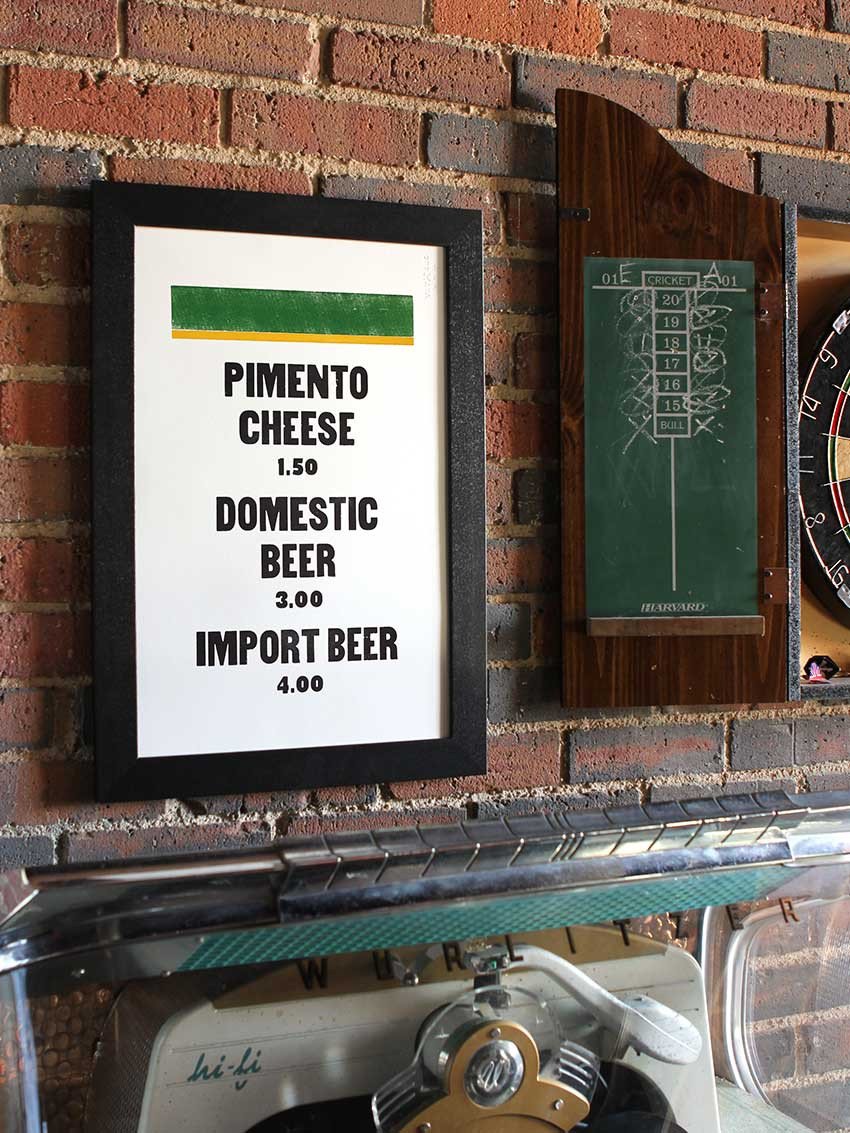 PIMENTO
CHEESE
1.50
DOMESTIC
BEER
3.00
IMPORT BEER
4.00
01 E CRICKET A 01
20
19
18
17
16
15
BULL
HARVARD
9
14
11
8
16
WURLITZER
hi-fi